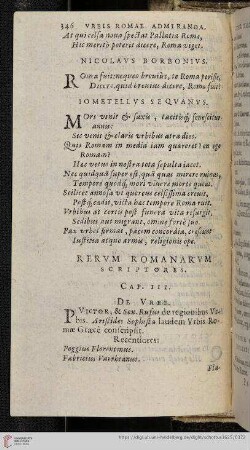 346 VRBIS ROMAE ADMIRANDA.
At qui celsa noua spectat Pallatia Romæ,
Hic meritò poterit dicere, Roma viget.
NICOLAVS BORBONIVS.
Roma fuit: neque breuius, te Roma perisse,
Dicere, quid breuius dicere, Roma fuit
IOMETELLVS SEQVANVS.
Mors venit & saxis, tacitisq; senescitur
annis:
Sic venit & claris vrbibus atra dies.
Quis Romam in media iam quæreret? en ego
Romam?
Hæc vetus in nostra tota sepulta iacet.
Nec quidquā super est, quā quas
Tempore quodq; mori vincere mortis
Scilicet annosa vt quercus celsissima
Post, victa hæc tempore Roma ruit.
Vrbibus at certis post funera vita resurgit,
Sedibus aut migrant, omine forte suo.
Pax vrbes firmat, pacem concordia,
Iustitia atque armis, religionis ope.
RERVM ROMANARVM
SCRIPTORES.
CAP. III.
DE VRBE.
P VICTOR, & Sex. Rufus de regionibus Vr-
bis. Aristides Sophista laudem Vrbis Ro-
mæ Græcè conscripsit.
Recentiores:
Poggius Florentinus.
Fabricius Varrhanus.
Fla-